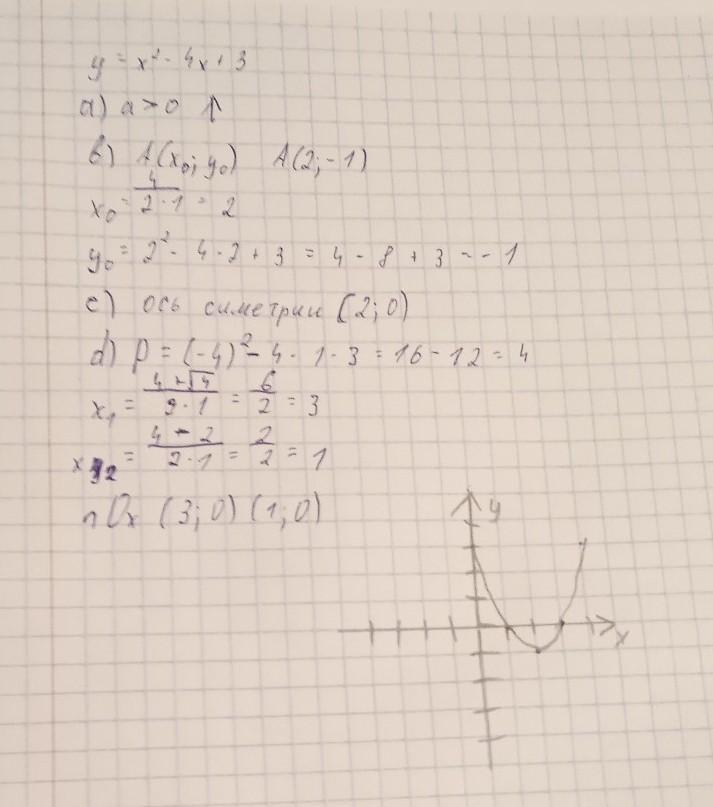 y = x² - 4x + 3
a) a > 0 ↑
b) A(x₀; y₀) A(2; -1)
x₀ = 4/(2·1) = 2
y₀ = 2² - 4·2 + 3 = 4 - 8 + 3 = -1
c) ось симетрии (2; 0)
d) D = (-4)² - 4·1·3 = 16 - 12 = 4
x₁ = (4+√4)/(2·1) = 6/2 = 3
x₂ = (4-2)/(2·1) = 2/2 = 1
∩Ox (3; 0) (1; 0)
y
x